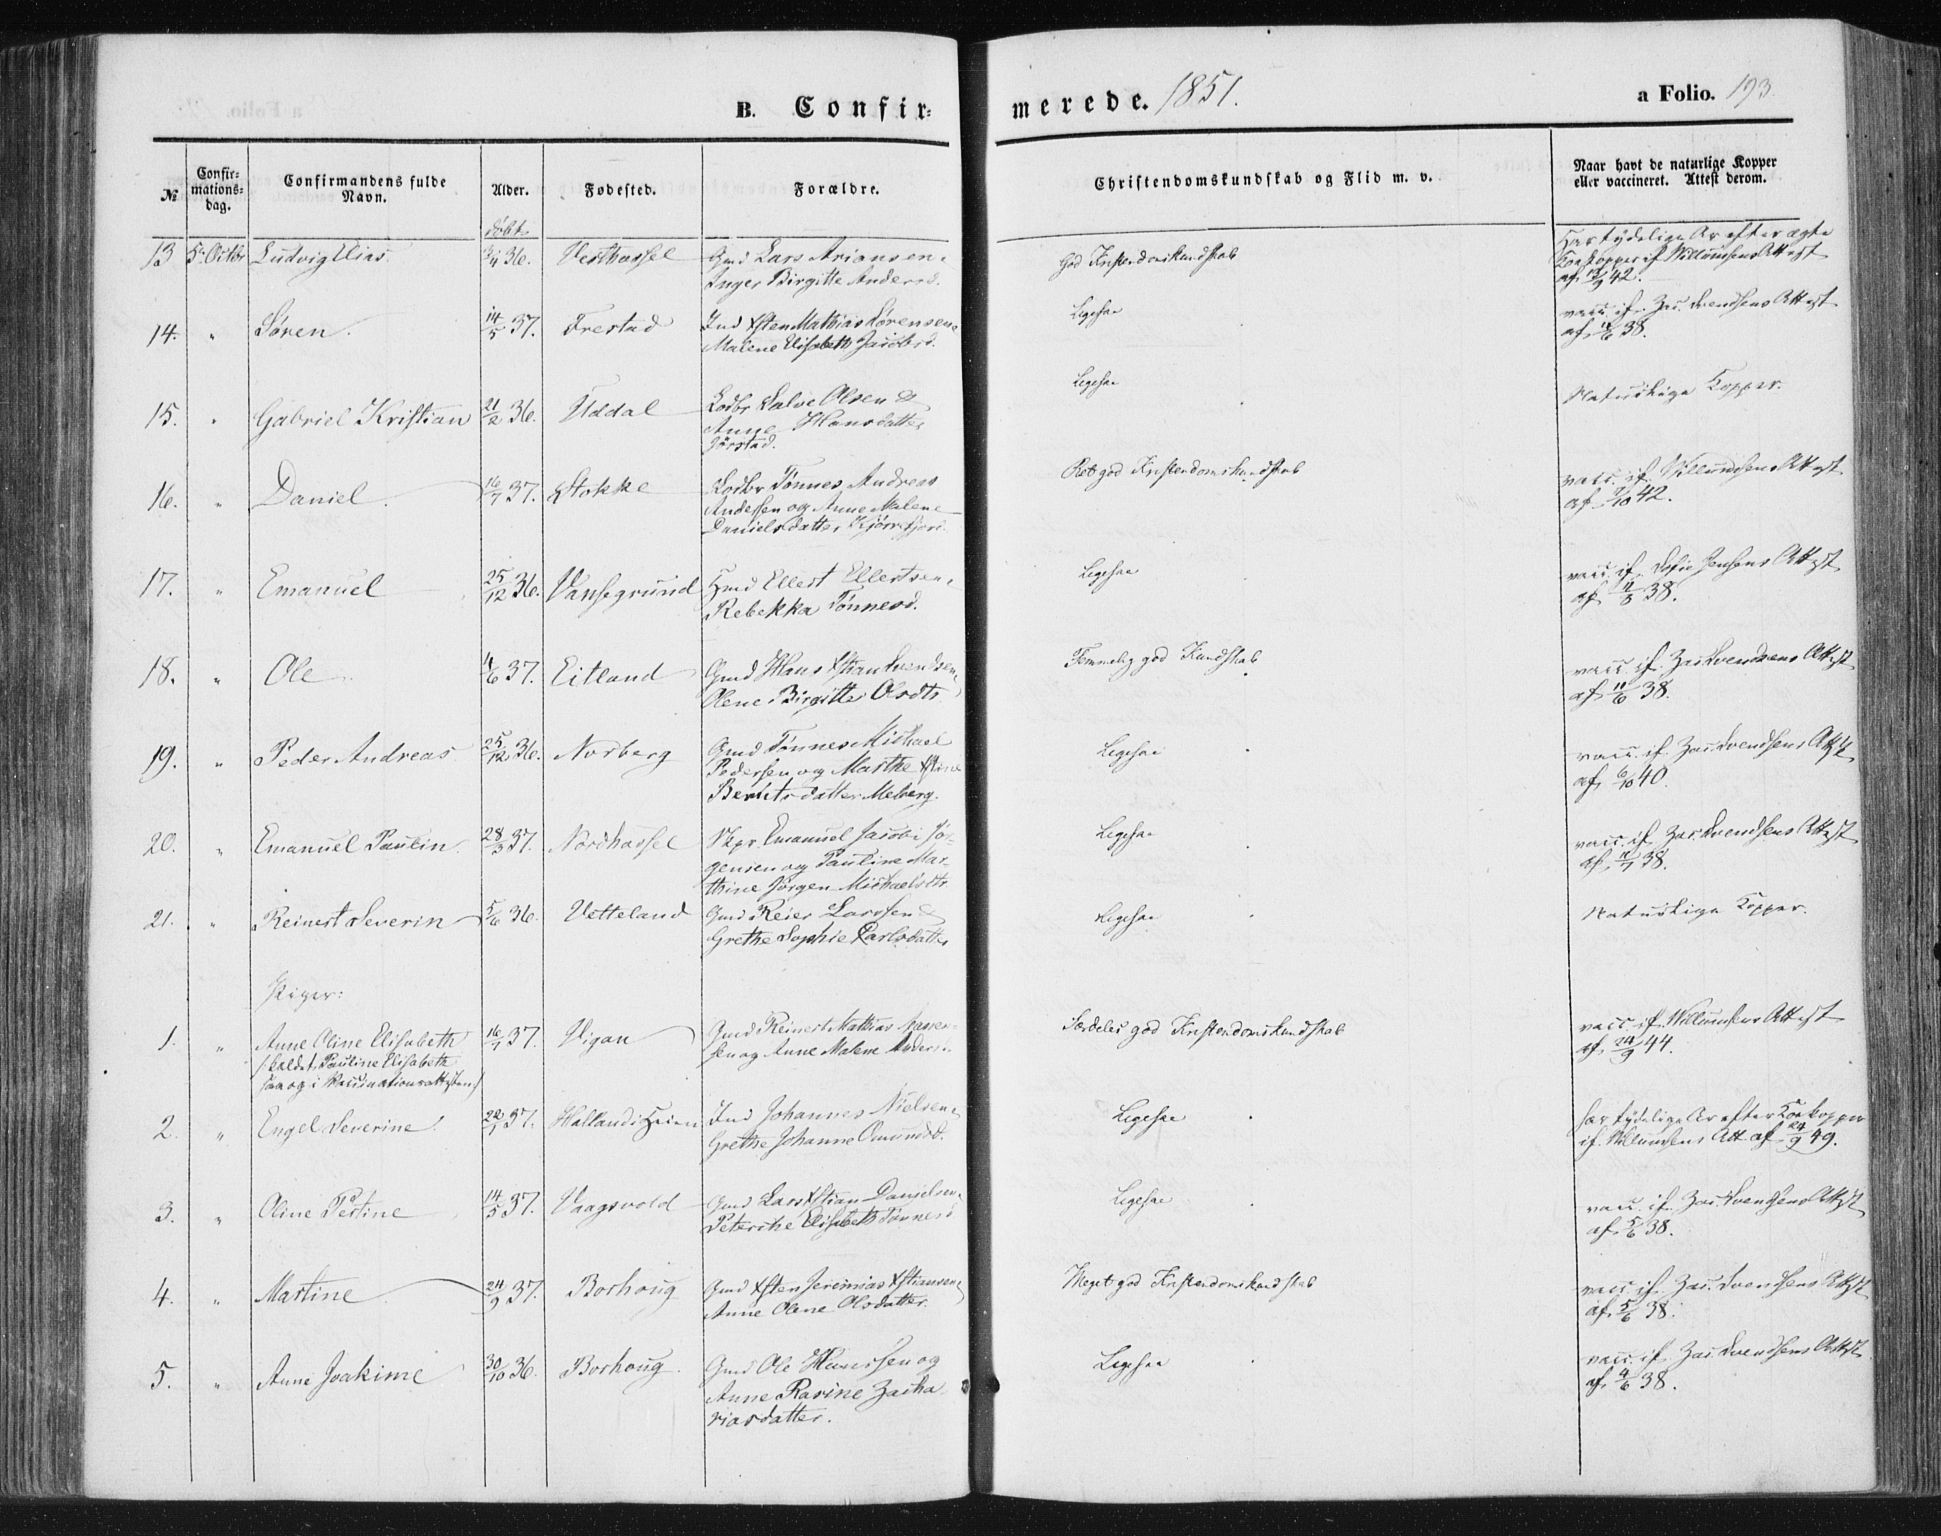 B. Confir-
merede. 1851.
a Folio. 193.
№
Confir-
mations-
dag.
Confirmandens fulde
Navn.
Alder.
Fødested.
Forældre.
Christendomskundskab og Flid m. v.
Naar havt de naturlige Kopper
eller vaccineret. Attest derom.
døbt
13 5te Octbr Ludvig Elias 36. Vesthassel Gmd Lars Ariansen,
Inger Birgitte Andersd.
God Kristendomskundskab
Har tydelige Ar efter ægte
Kokopper if. Willumsens Attest
af 42.
14. " Søren. 14/5 37. Frestad Ind Xsten Mathias Sørensen,
Malene Elisabeth Jacobsd.
Ligesaa
vacc. if. Zac. Svendsens Attest
af 38.
15. " Gabriel Kristian 21/2 36. Uddal Lodbr Salve Olsen &
Anne Hansdatter
Jørstad.
Ligesaa
Naturlige Kopper.
16. " Daniel 16/7 37. Stokke Lodbr Tønnes Andreas
Andersen og Anne Malene
Danielsdatter Kjørrefjord.
Ret god Kristendomskundskab
vacc. if. Willumsens Attest
af 7/10 42.
17. " Emanuel 25/12 36. Vansegrund Hmd Ellert Ellertsen,
Rebekka Tønnesd.
Ligesaa
vacc. if. Sofie Jensens Attest
af 38.
18. " Ole 4/6 37. Eitland Gmd Hans Xstian Svendsen,
Olene Birgitte Olsdtr
Temmelig god Kundskab
vacc. if. Zac. Svendsens Attest
af 11/6 38.
19. " Peder Andreas 25/12 36. Norberg Gmd Tønnes Michael
Pedersen og Marthe Xstine
Berntsdatter Meberg.
Ligesaa
vacc. if. Zac. Svendsens Attest
af 6/10 40.
20. " Emanuel Paulin 28/3 37. Nordhassel Skpr. Emanuel Jacobi Jør-
gensen og Pauline Mar-
thine Jørgen Michaelsdtr
Ligesaa
vacc. if. Zac. Svendsens Attest
af 11/7 38.
21. " Reinert Severin 5/6 36. Vetteland Gmd Reier Larssen &
Grethe Sophie Carlsdatter
Ligesaa
Naturlige Kopper.
Piger:
1. " Anne Oline Elisabeth 16/7 37. Vigan Gmd Reinert Mathias Aanen-
sen og Anne Malene Andersd.
(kaldet Pauline Elisabeth
saa og i Vaccinationsattesten)
Særdeles god Kristendomskundskab
vacc. if. Willumsens Attest
af 24/9 44.
2. " Engel Severine 22/7 37. Hallandsheien Ind Johannes Nielsen,
Grethe Johanne Omundsd.
Ligesaa
har tydelige Ar efter Kokopper
if. Willumsens Att. af 24/9 49.
3. " Oline Pestine 14/5 37. Vaagsvold Gmd Lars Xstian Danielsen,
Peterike Elisabeth Tønnesd
Ligesaa
vacc. if. Zac. Svendsens Attest
af 5/6 38.
4. " Martine 24/9 37. Borhoug Gmd Xsten Jeremias Xstiansen,
Anne Olene Olsdatter.
Meget god Kristendomskundskab
vacc. if. Zac. Svendsens Attest
af 5/6 38.
5. " Anne Joakime 30/10 36. Borhoug. Gmd Ole Hanssen og
Anne Rasine Zacha-
riasdatter.
Ligesaa
vacc. if. Zac. Svendsens Attest
af 4/6 38.